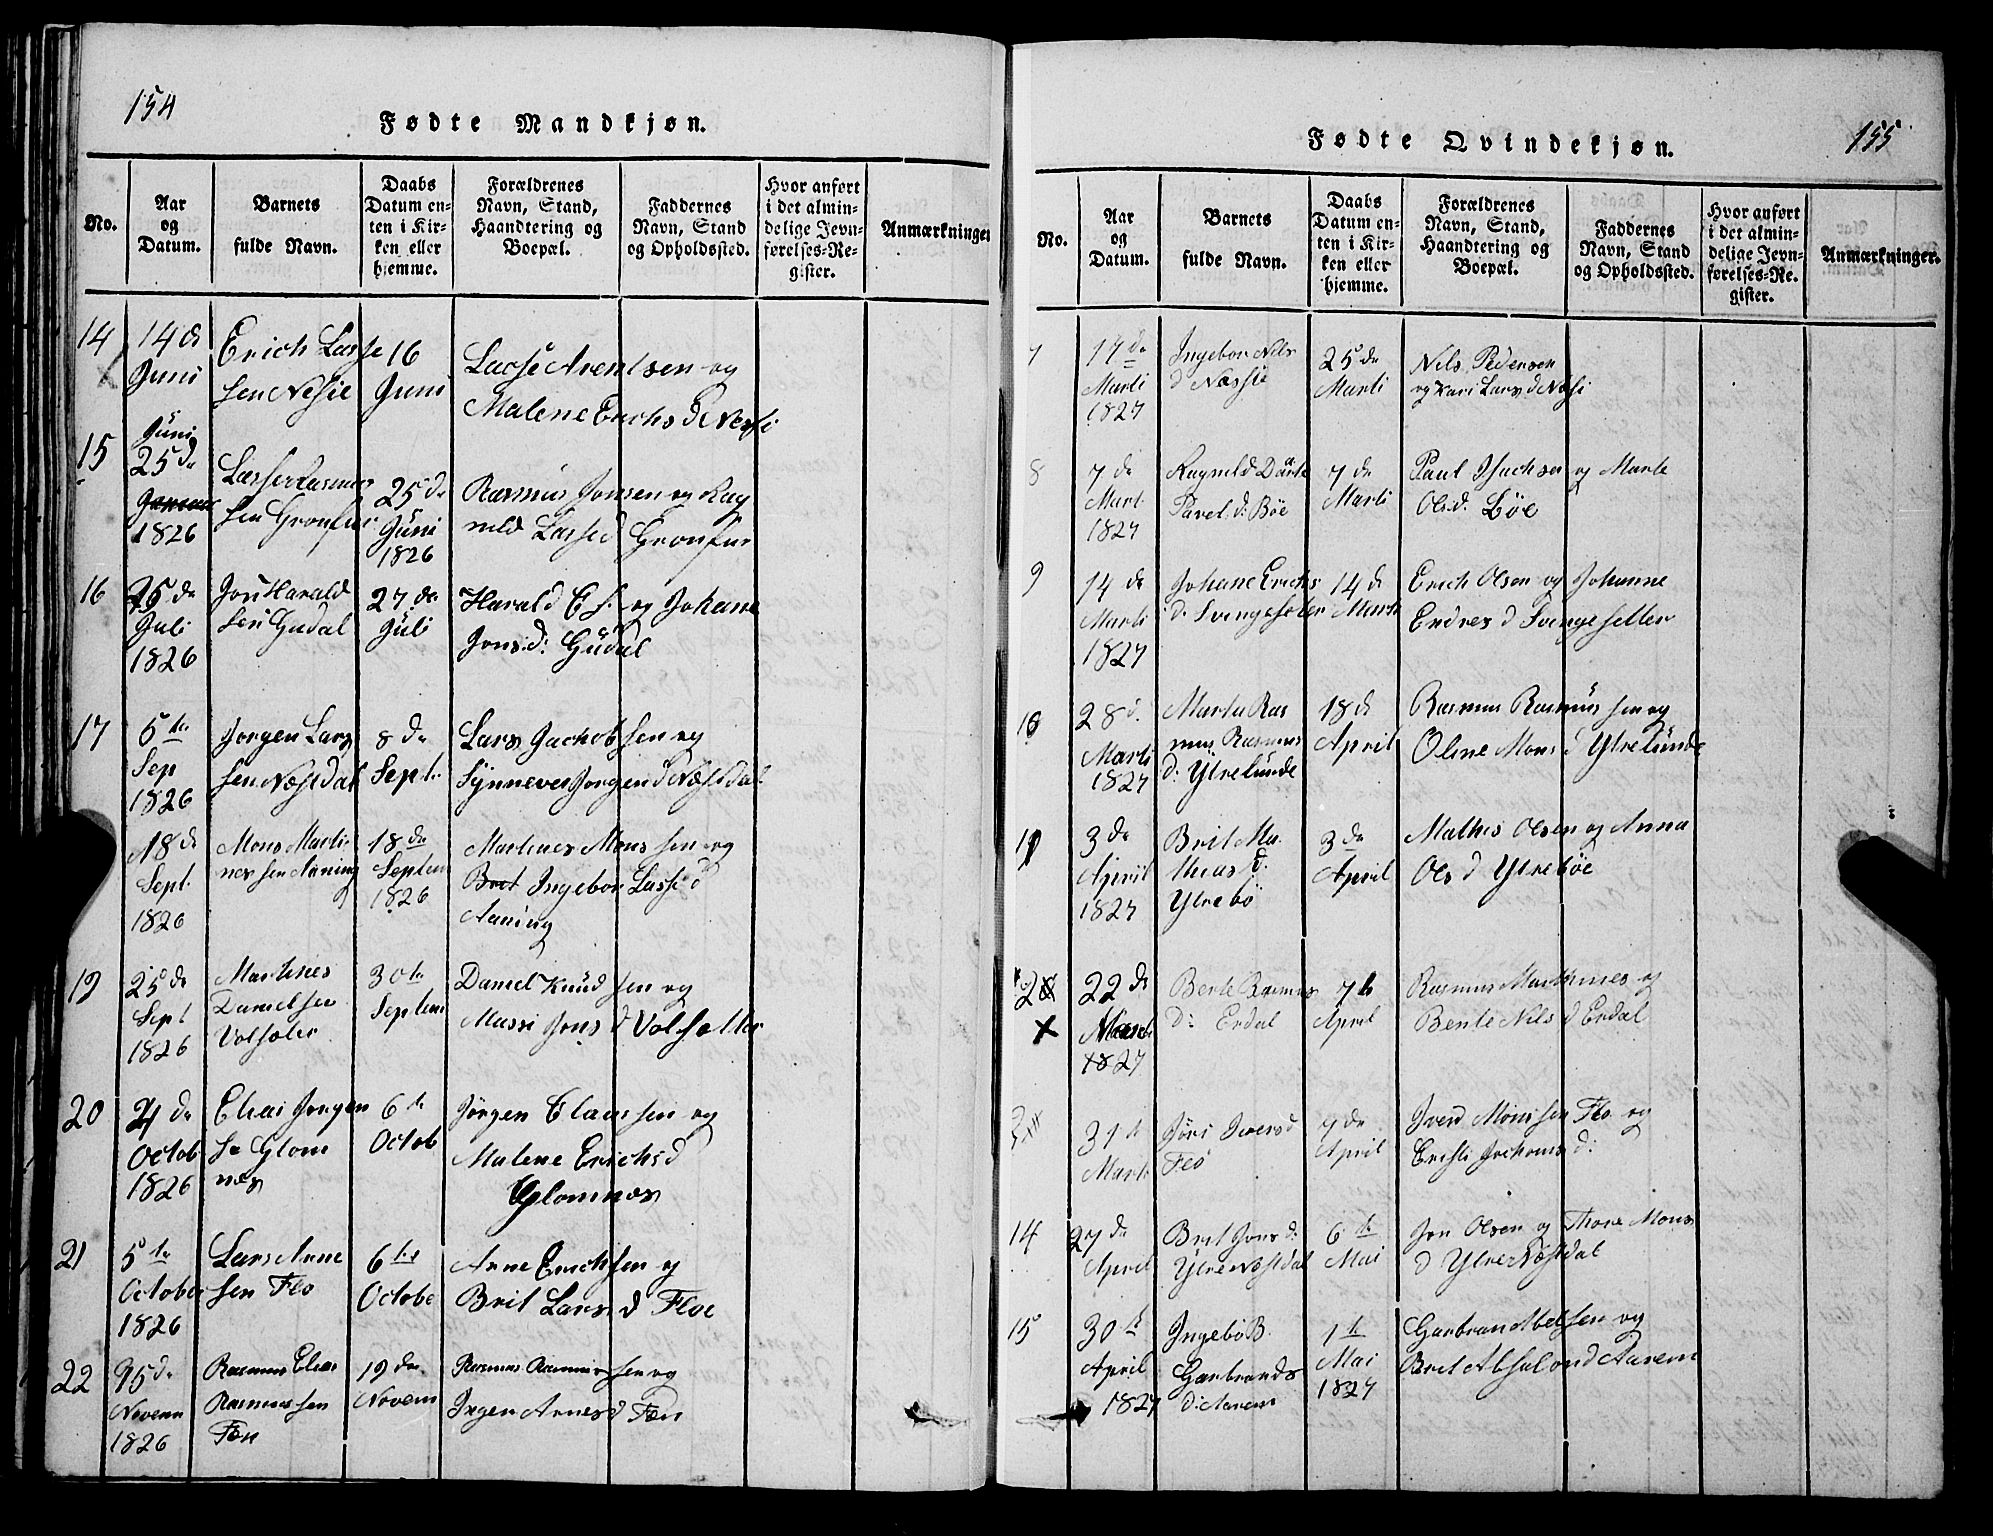 154
Fødte Mandkjøn.
No.
Aar og Datum.
Barnets fulde Navn.
Daabs Datum enten i Kirken eller hjemme.
Forældrenes Navn, Stand, Haandtering og Boepæl.
Faddernes Navn, Stand og Opholdssted.
Hvor anført i det almindelige Jevnførelses-Register.
Anmærkninger
14
14 d
Juni
Erich Lasse
sen Nesie
16
Juni
Lasse Arentsen og
Malene Erichs d
15
Juni
25 d
1826
Lasse Rasmus
sen
25 d
Juni
1826
Rasmus Jonsen og Rag
nild Lasse d
16
25 d
Juli
1826
Jon Harald
sen Gudal
27 d
Juli
Harald og Johane
Jons d: Gudal
17
5 te
Sep
1826
Jorgen Lars
sen Næstdal
8 d
Sept.
Lars Jachob sen og
Synneve Jorgen d Næstdal
18 d
Sept.
1826
Mons Marti
nes sen Aaning
18 d
Septem
1826
Martines Mons sen og
Brit Ingebor Lasse d
Aaning
19
25 d
Sept
1826
Martines
Danielsen
Volsæter
30 te
Septem
Daniel Knud sen og
Massi Jons d Volsætter
20
d
Octob
1826
Elias Jorgen
se Glom
nes
6 te
Octob
Jørgen Claus sen og
Malene Erichs d
Glomnes
21
5 te
October
1826
Lars Arne
sen Flo
6 te
Octobe
Arne Erichsen og
Brit Lars d Floe
22
15 d
Novem
1826
Rasmus Elias
Rasmus sen
19 d
Novem
Rasmus Rasmus sen og
Inger Arnes d
155
Fødte Qvindekjøn.
No.
Aar og Datum.
Barnets fulde Navn.
Daabs Datum enten i Kirken eller hjemme.
Forældrenes Navn, Stand, Haandtering og Boepæl.
Faddernes Navn, Stand og Opholdssted.
Hvor anført i det almindelige Jevnførelses-Register.
Anmærkninger.
7
17 d
Marti
1827
Ingebor Nils
d Nessie
25 d
Marti
Nils Pedersen
og Kari Lars d Nesi
8
7 d
Mart
1827
Ragnild Dorte
Pavel d: Böe
7 d
Marti
Paul Isachsen og Marte
Ols d: Böe
9
14 d
Marti
1827
Johane Erichs
d: Svingesæter
14 d
Marti
Erich Olsen og Johanne
Endres d Svingesetter
10
28 d.
Marti
1827
Marta Ras
mus Rasmus
d: Ytrelunde
18 d
April
Rasmus Rasmus sen og
Oline Mons d Ytrelunde
11
3 d
April
1827
Brit Ma
thias d:
Ytrebö
3 d
April
Mathis Olsen og Anna
Ols d Ytreböe
22 d
Marti
1827
Berte Rasmus
d: Erdal
7 te
April
Rasmus Marthines og
Bente Nils d Erdal
31 te
Marti
Jöri Ivers d
Flo
April
Iver Mons sen Flo og
d:
14
27 d
April
Brit Jons d:
Ytre Næstdal
6 te
Mai
Jon Olsen og Thore Mons
d Ytre Næstdal
15
30 te
April
1827
Ingebö B.
Garbrands
d: Aarem
1 te
Mai
1827
Garbran Abelsen og
Brit Absalon d Aarem